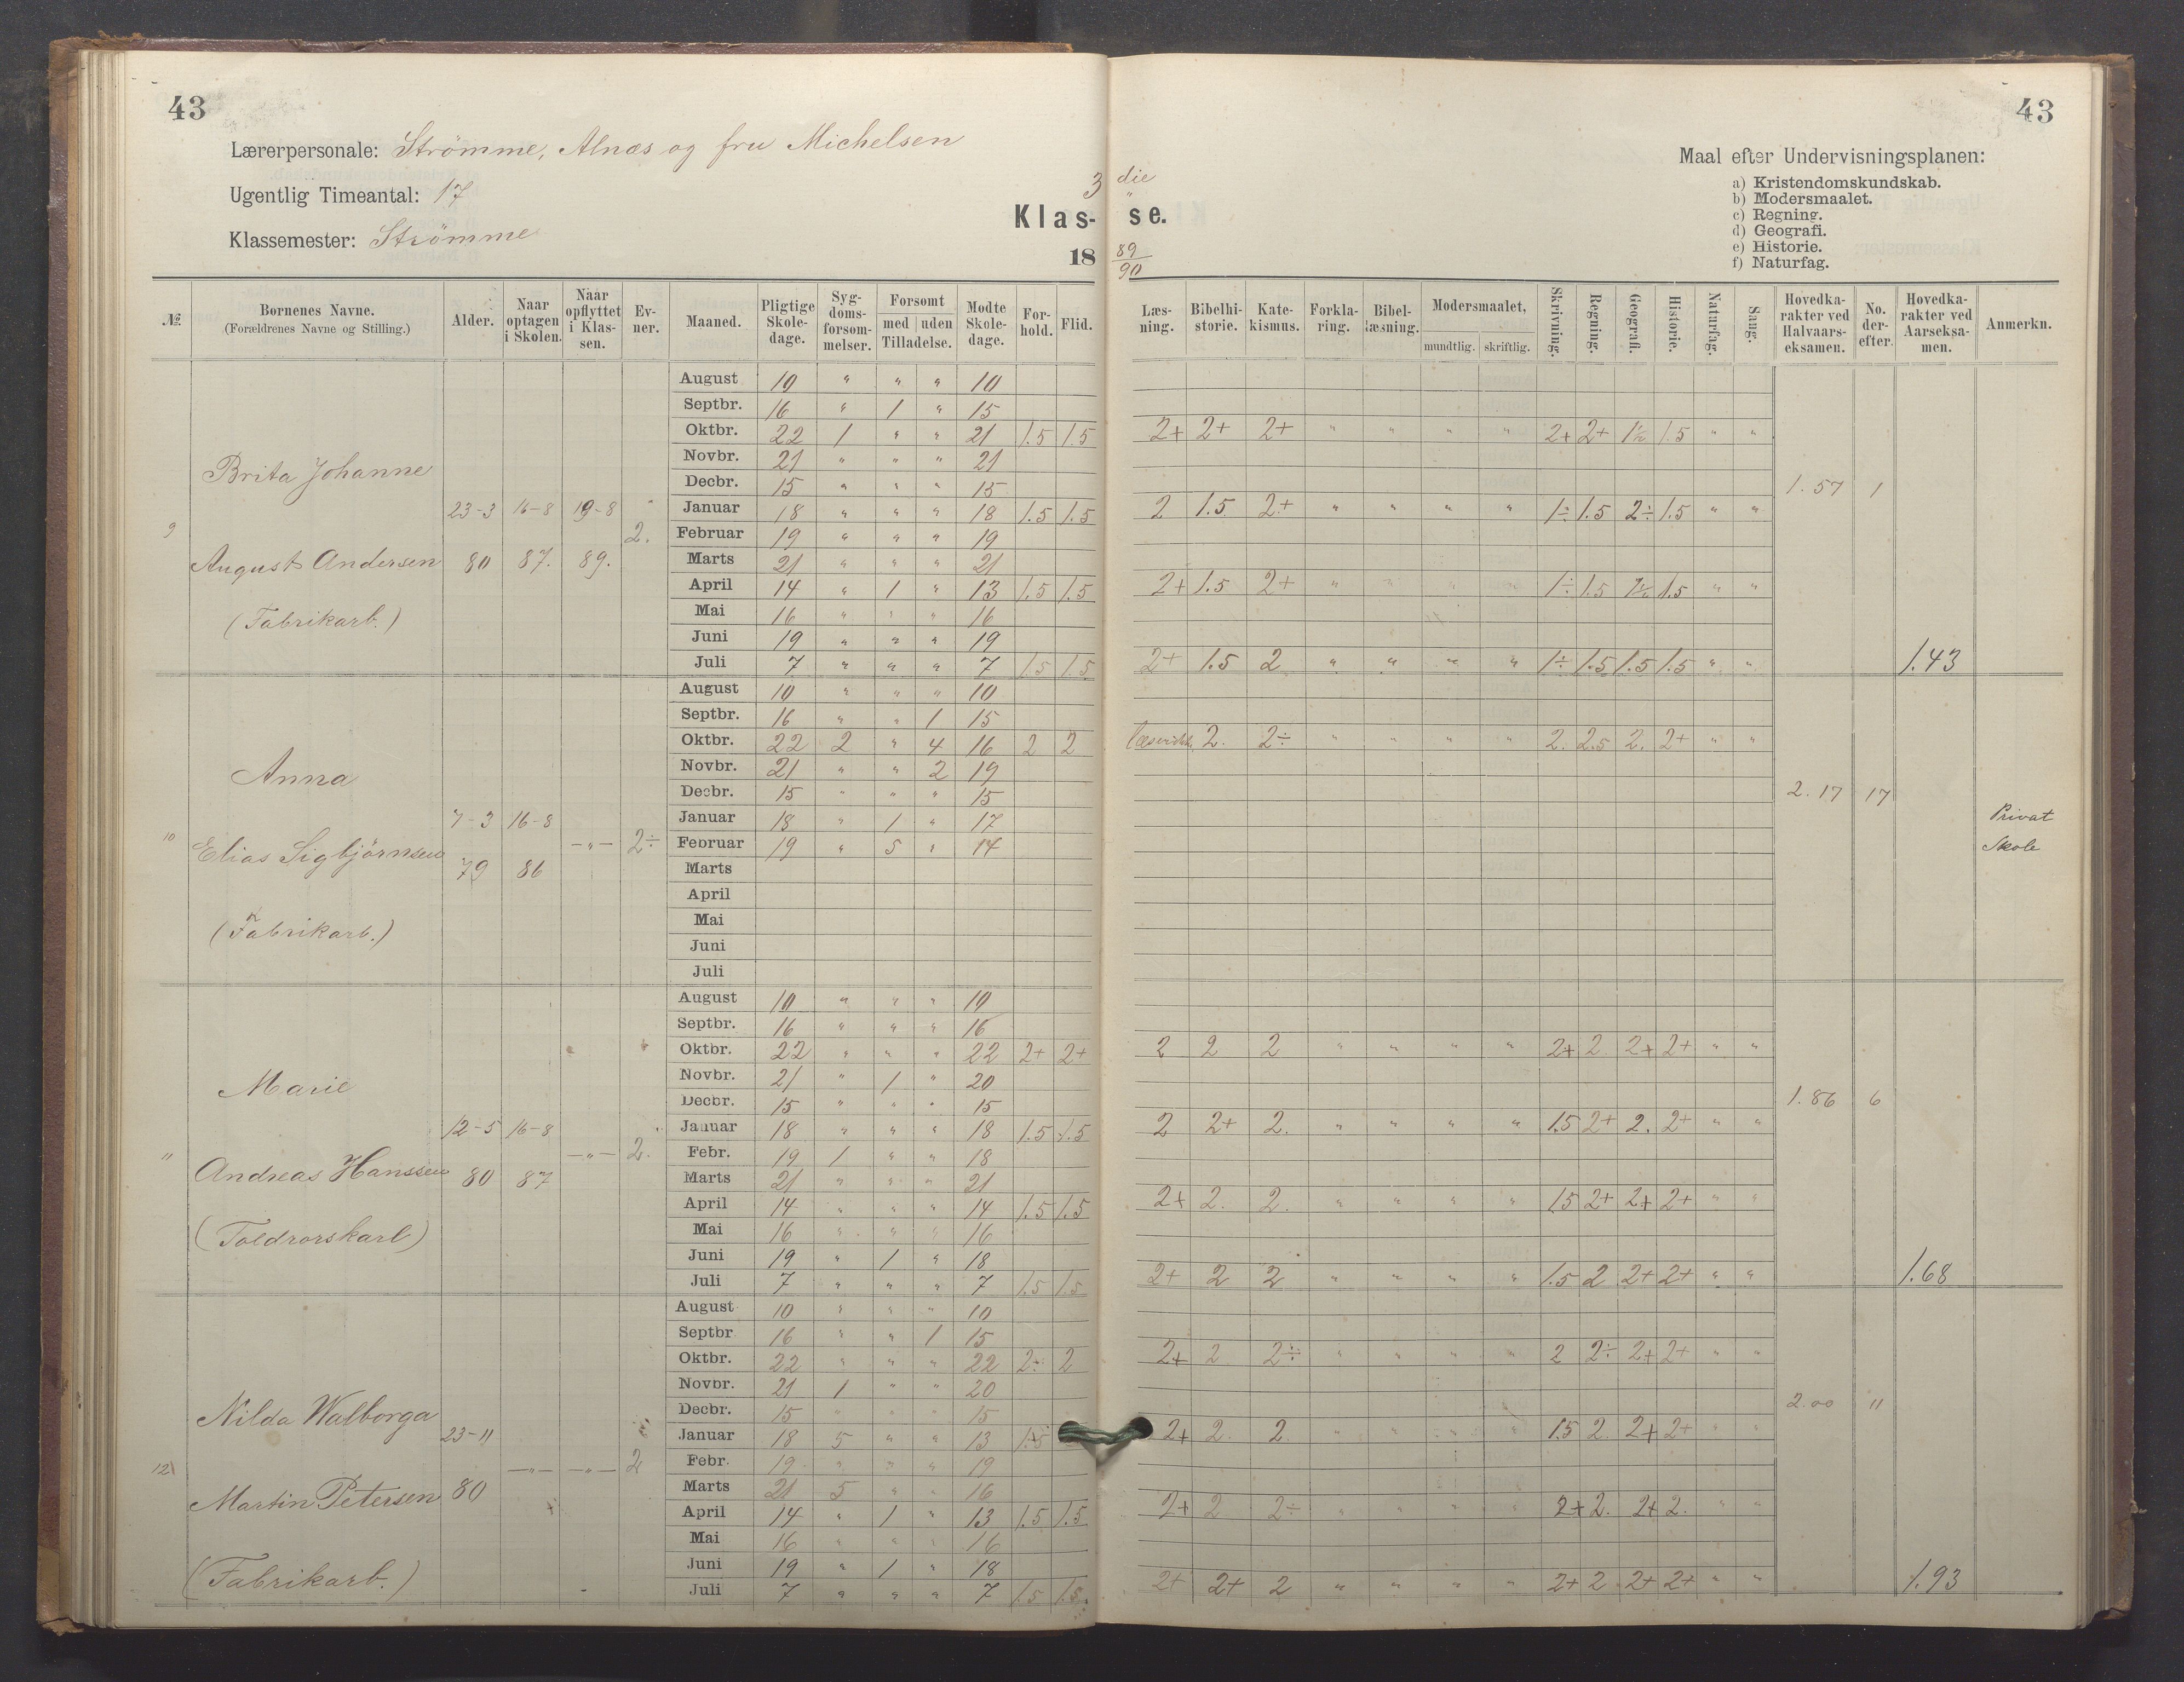 43
43
Lærerpersonale: Strömme, Alnæs og fru Michelsen
Ugentlig Timeantal: 17
Klassemester: Strömme
3 die
Klas- se.
18 89/90
Maal efter Undervisningsplanen:
a) Kristendomskundskab.
b) Modersmaalet.
c) Regning.
d) Geografi.
e) Historie.
f) Naturfag.
№ Børnenes Navne. (Forældrenes Navne og Stilling.) Alder. Naar optagen i Skolen. Naar opflyttet i Klassen. Evner. Maaned. Pligtige Skoledage. Sygdomsforsommelser. Forsomt med uden Tilladelse. Mødte Skoledage. Forhold. Flid. Læsning. Bibelhistorie. Katekismus. Forklaring. Bibellæsning. Modersmaalet, mundtlig. skriftlig. Skrivning. Regning. Geografi. Historie. Naturfag. Sang. Hovedkarakter ved Halvaarseksamen. No. derefter. Hovedkarakter ved Aarseksamen. Anmerkn.
9 Brita Johanne
August Andersen
(Fabrikarb.)
23-3 80 16-8 87. 19-8 89. 2.
August 10 " " " 10
Septbr. 16 " 1 " 15
Oktbr. 22 1 " " 21 1.5 1.5 2+ 2+ 2+ " " " " 2+ 2+ 1½ 1.5 " "
Novbr. 21 " " " 21
Decbr. 15 " " " 15
1.57 1
Januar 18 " " " 18 1.5 1.5 2 1.5 2+ " " " " 1÷ 1.5 2÷ 1.5 " "
Februar 19 " " " 19
Marts 21 " " " 21
April 14 " 1 " 13 1.5 1.5 2+ 1.5 2+ " " " " 1÷ 1.5 1½ 1.5 " "
Mai 16 " " " 16
Juni 19 " " " 19
Juli 7 " " " 7 1.5 1.5 2+ 1.5 2 " " " " 1÷ 1.5 1.5 1.5 " " 1.43
10 Anna
Elias Sigbjörnsen
(Fabrikarb.)
7-3 79 16-8 86 -"- 2÷
August 10 " " " 10
Septbr. 16 " " 1 15
Oktbr. 22 2 " 4 16 2 2 2. 2÷ " " " " 2. 2.5 2. 2+ " "
Novbr. 21 " " 2 19
Decbr. 15 " " " 15
2.17 17
Januar 18 " 1 " 17
Februar 19 " 5 " 14
Privat
Skole
Marts
April
Mai
Juni
Juli
11 Marie
Andreas Hanssen
(Toldrorskarl)
12-5 80 16-8 87 -"- 2.
August 10 " " " 10
Septbr. 16 " " " 16
Oktbr. 22 " " " 22 2+ 2+ 2 2 2 " " " " 2+ 2. 2+ 2+ " "
Novbr. 21 " 1 " 20
Decbr. 15 " " " 15
1.86 6
Januar 18 " " " 18 1.5 1.5 2 2+ 2. " " " " 1.5 2+ 2. 2+ " "
Febr. 19 1 " " 18
Marts 21 " " " 21
April 14 " " " 14 1.5 1.5 2+ 2. 2. " " " " 1.5 2+ 2+ 2+ " "
Mai 16 " " " 16
Juni 19 " 1 " 18
Juli 7 " " " 7 1.5 1.5 2+ 2 2 " " " " 1.5 2 2+ 2+ " " 1.68
12 Nilda Walborga
Martin Petersen
(Fabrikarb.)
23-11 80 -"- -"- 2
August 10 " " " 10
Septbr 16 " " 1 15
Oktbr. 22 " " " 22 2÷ 2 2+ 2 2÷ " " " " 2 2÷ 2+ 2+ " "
Novbr. 21 1 " " 20
Decbr. 15 " " " 15
2.00 11
Januar 18 5 " " 13 1.5 2+ 2. 2 " " " " 1.5 2. 2+ 2+ " "
Febr. 19 " " " 19
Marts 21 5 " " 16
April 14 " 1 " 13 1.5 1.5 2+ 2 2÷ " " " " 2+ 2. 2+ 2. " "
Mai 16 " " " 16
Juni 19 " 1 " 18
Juli 7 " " " 7 1.5 1.5 2+ 2+ 2 " " " " 2+ 2 2+ 2+ " " 1.93